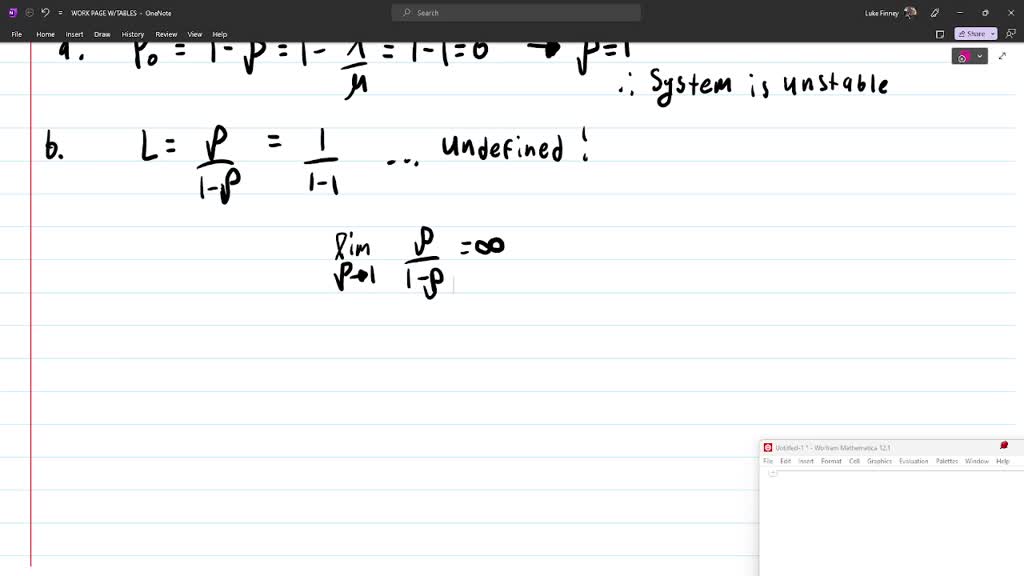 WORK PAGE W/TABLES - OneNote
Search
Luke Finney
File Home Insert Draw History Review View Help
Share
a. P₀ = 1-ρ = 1- λ/μ = 1-1=0 → ρ=1
∴ System is unstable
b. L = ρ/(1-ρ) = 1/(1-1) ... undefined!
lim ρ→1 ρ/(1-ρ) = ∞
Untitled-1 * - Wolfram Mathematica 12.1
File Edit Insert Format Cell Graphics Evaluation Palettes Window Help